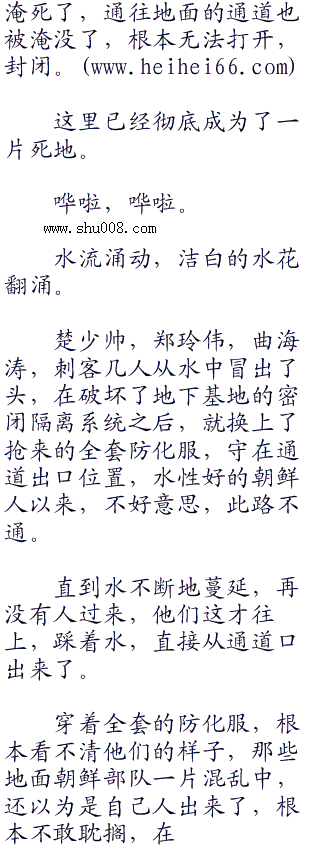 淹死了，通往地面的通道也
被淹没了，根本无法打开，
封闭。(www.heihei66.com)
这里已经彻底成为了一
片死地。
哗啦，哗啦。
www.shu008.com
水流涌动，洁白的水花
翻涌。
楚少帅，郑玲伟，曲海
涛，刺客几人从水中冒出了
头，在破坏了地下基地的密
闭隔离系统之后，就换上了
抢来的全套防化服，守在通
道出口位置，水性好的朝鲜
人以来，不好意思，此路不
通。
直到水不断地蔓延，再
没有人过来，他们这才往
上，踩着水，直接从通道口
出来了。
穿着全套的防化服，根
本看不清他们的样子，那些
地面朝鲜部队一片混乱中，
还以为是自己人出来了，根
本不敢耽搁，在